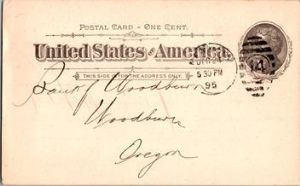 POSTAL CARD - ONE CENT.
United States of America.
THIS SIDE IS FOR THE ADDRESS ONLY.
5 30 PM
95
14
Bank of Woodburn
Woodburn
Oregon